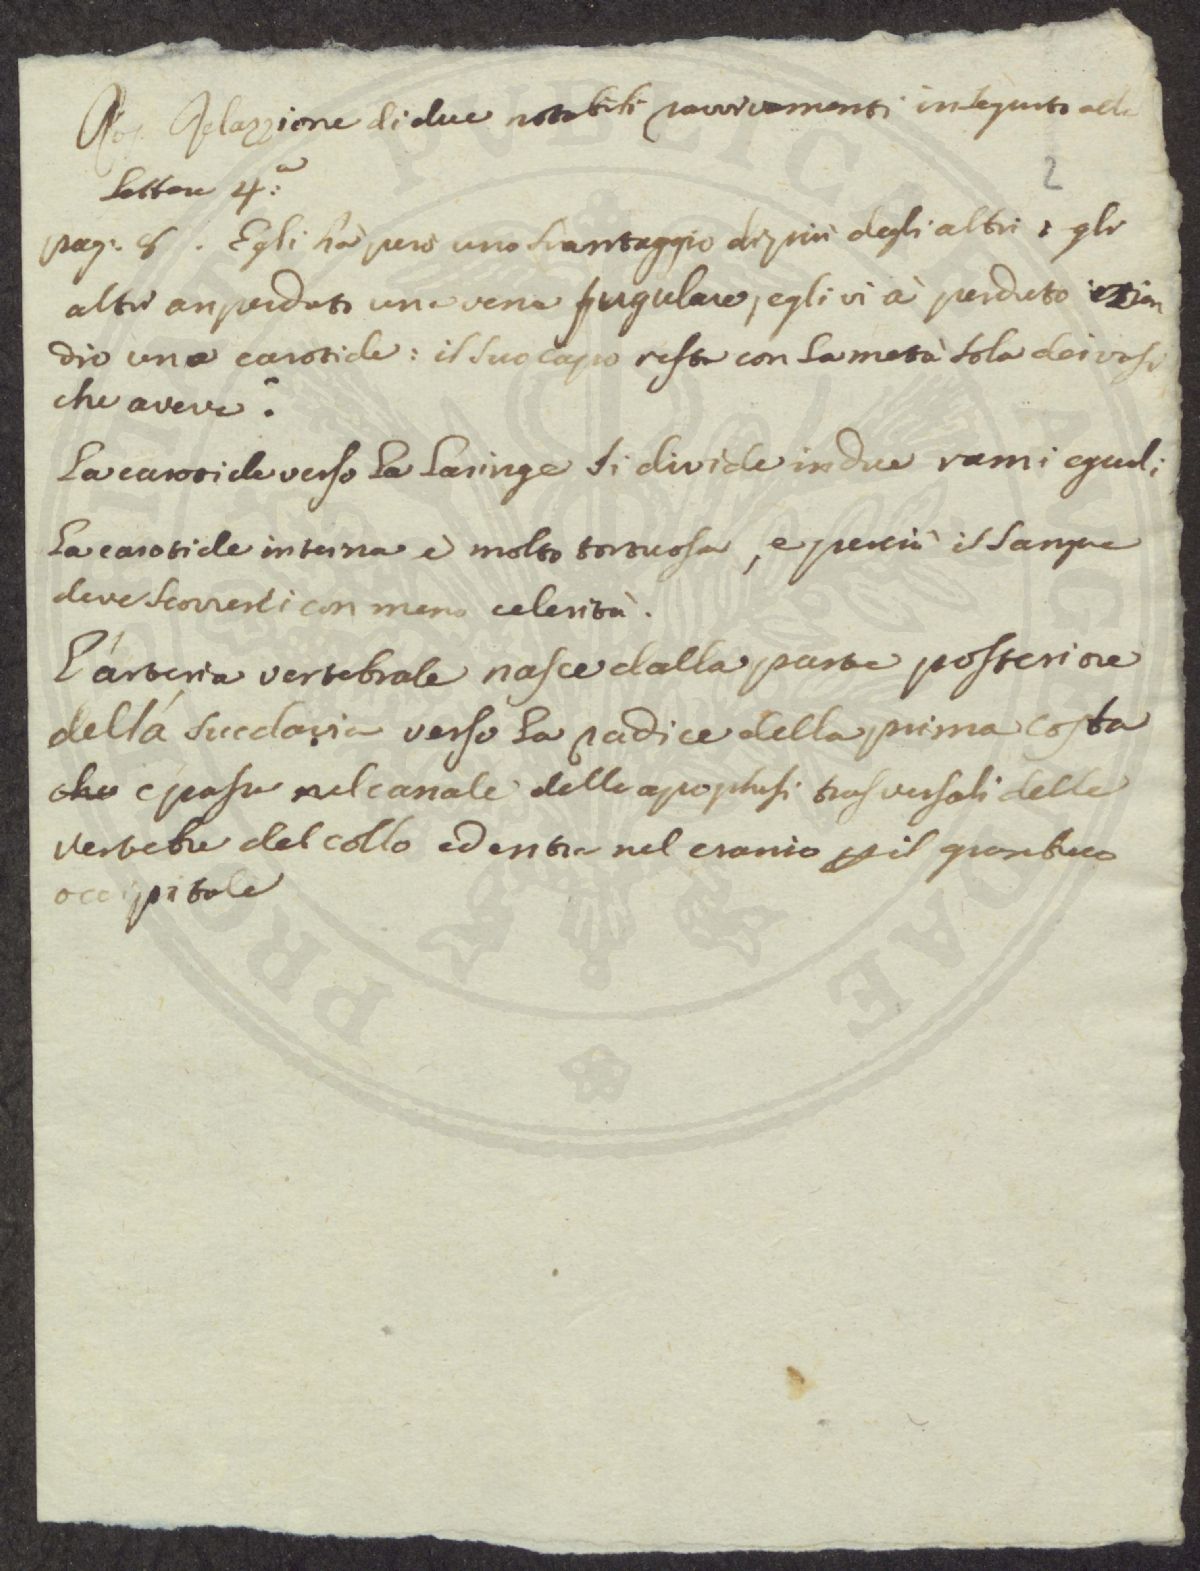 Ros. Relazzione di due notabili ravvivamenti in seguito alla
2
Lettera 4.a
pag. 8. Egli hà però uno svantaggio di più degli altri: gli
altri an perduto una vena jugulare, egli vi à perduto ezian
dio una carotide: il suo capo resta con la metà sola dei vasi
che aveva.
La carotide verso la laringe si divide in due rami eguali
La carotide interna è molto tortuosa, e perciò il sangue
deve scorrerli con meno celerità.
L'arteria vertebrale nasce dalla parte posteriore
della succlavia verso la radice della prima costa
che è passa nel canale delle apophisi trasversali delle
vertebre del collo ed entra nel cranio p il gran buco
occipitale
PUBLICAE AUGENDAE PRO